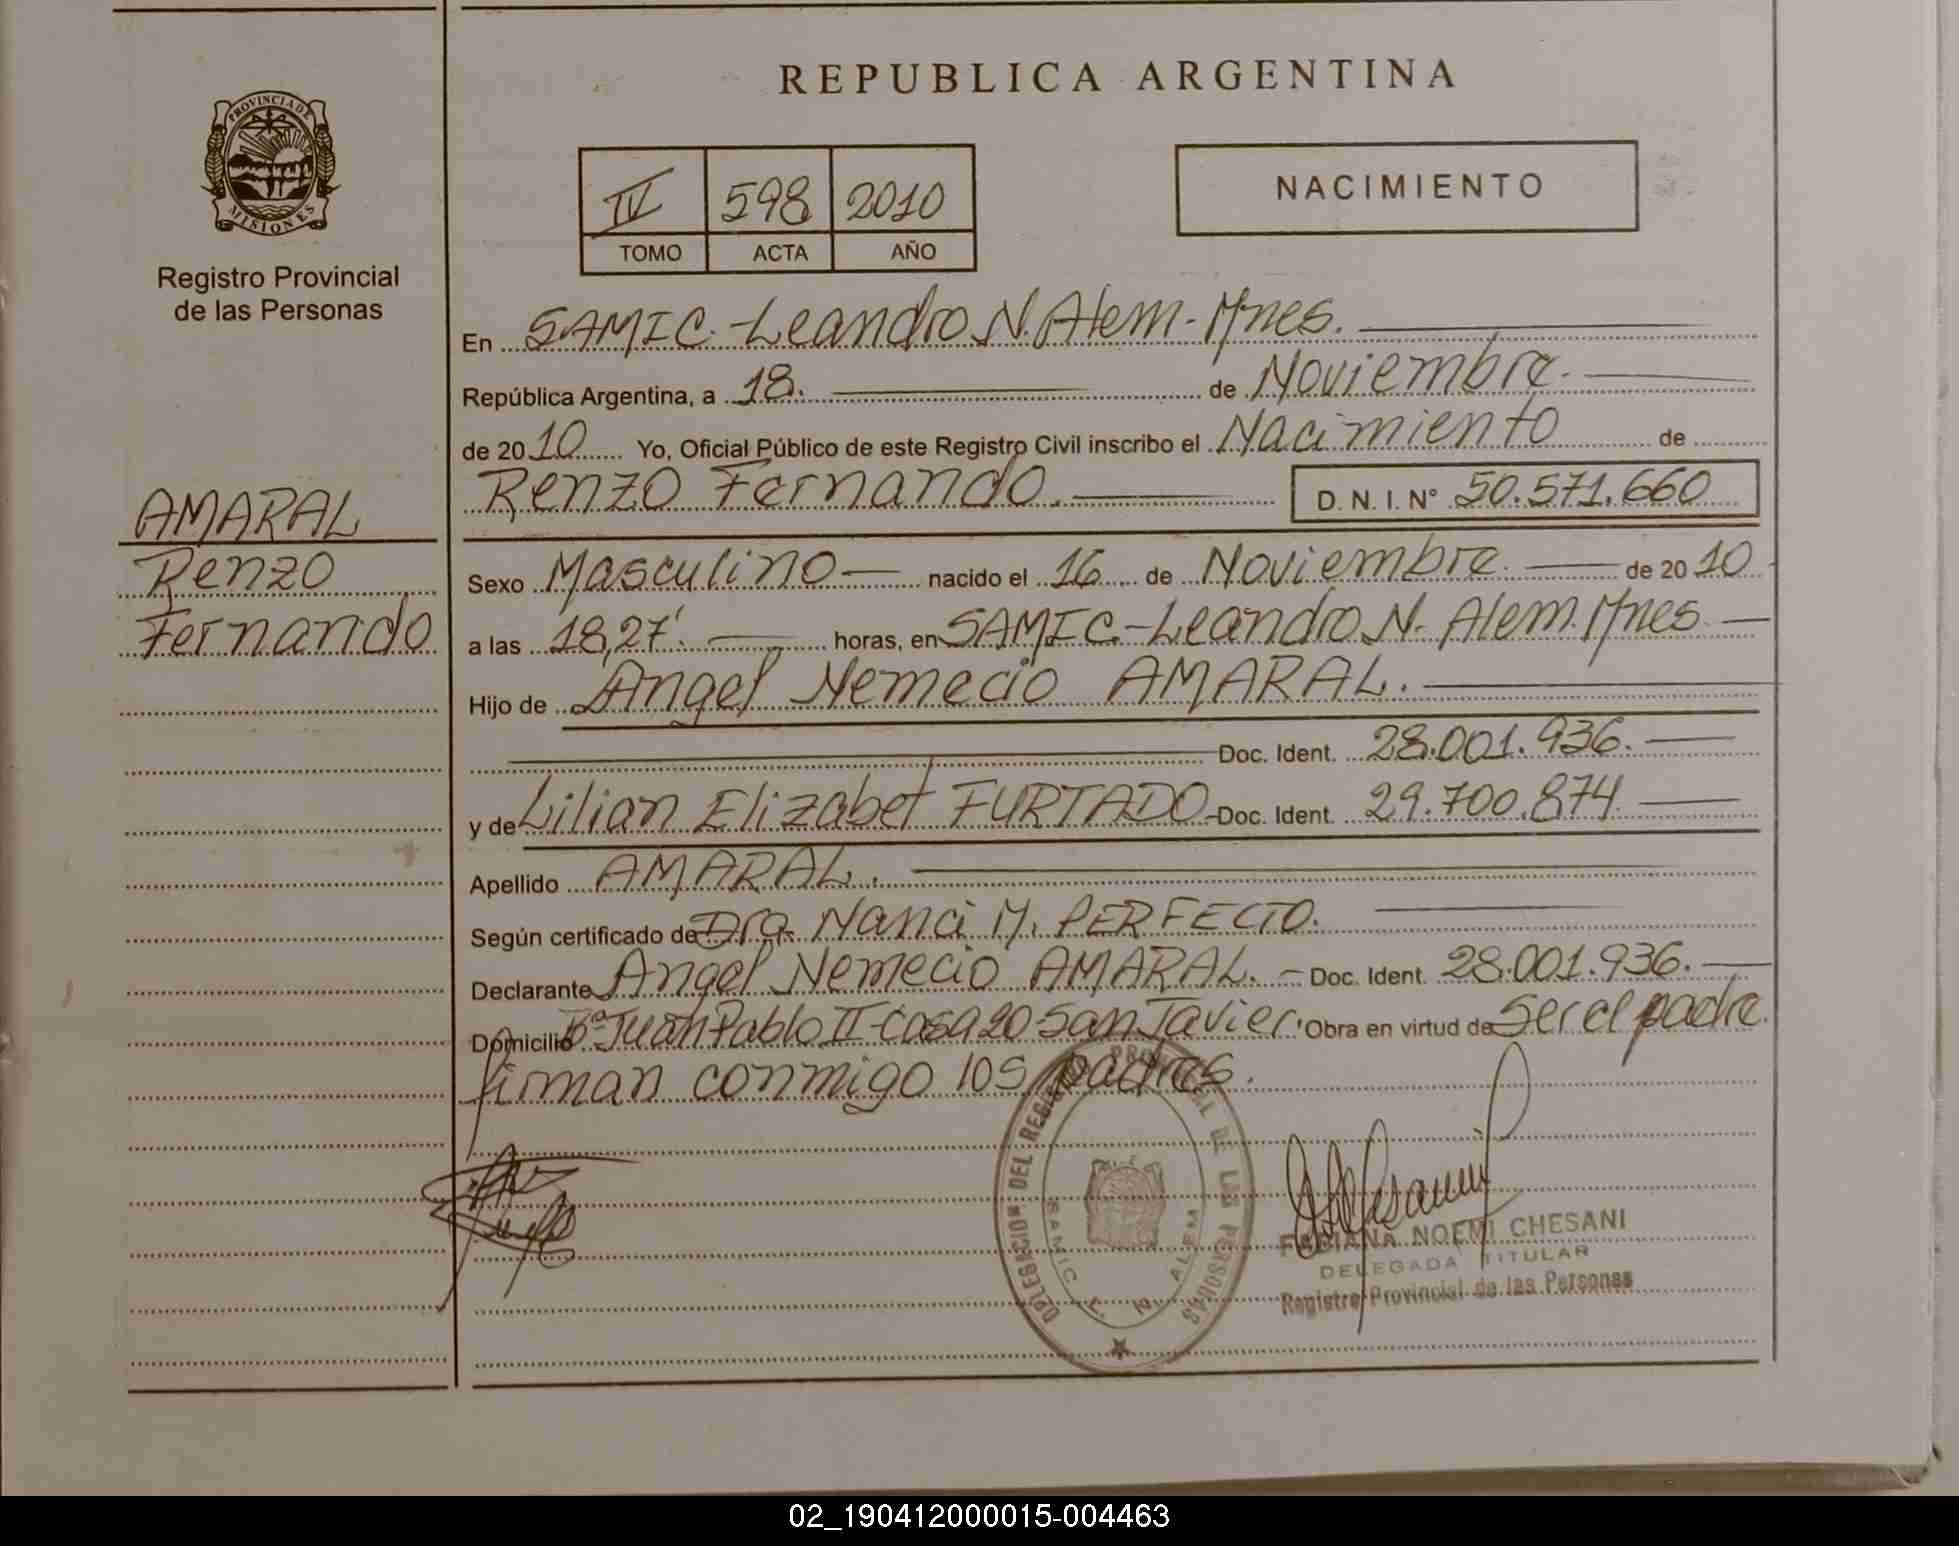 REPUBLICA ARGENTINA
PROVINCIA DE
MISIONES
Registro Provincial
de las Personas
IV 598 2010
TOMO ACTA AÑO
NACIMIENTO
En SAMIC.-Leandro N. Alem-Mnes.
República Argentina, a 18. de Noviembre.
de 2010 Yo, Oficial Público de este Registro Civil inscribo el Nacimiento de
Renzo Fernando. D. N. I. N° 50.571.660
AMARAL
Renzo
Fernando
Sexo Masculino nacido el 16 de Noviembre. de 2010
a las 18,27'. horas, en SAMIC.-Leandro N. Alem. Mnes
Hijo de Angel Nemecio AMARAL.
Doc. Ident. 28.001.936.
y de Lilian Elizabet FURTADO Doc. Ident. 29.700.874
Apellido AMARAL.
Según certificado de Dra. Nanci M. PERFECTO.
Declarante Angel Nemecio AMARAL. Doc. Ident. 28.001.936.
Domicilio B° Juan Pablo II-Casa 20 San Javier. Obra en virtud de Ser el padre.
firman conmigo los padres.
DELEGACION DEL REGISTRO PROVINCIAL DE LAS PERSONAS
SAMIC L. N. ALEM
FABIANA NOEMI CHESANI
DELEGADA TITULAR
Registro Provincial de las Personas
02_190412000015-004463